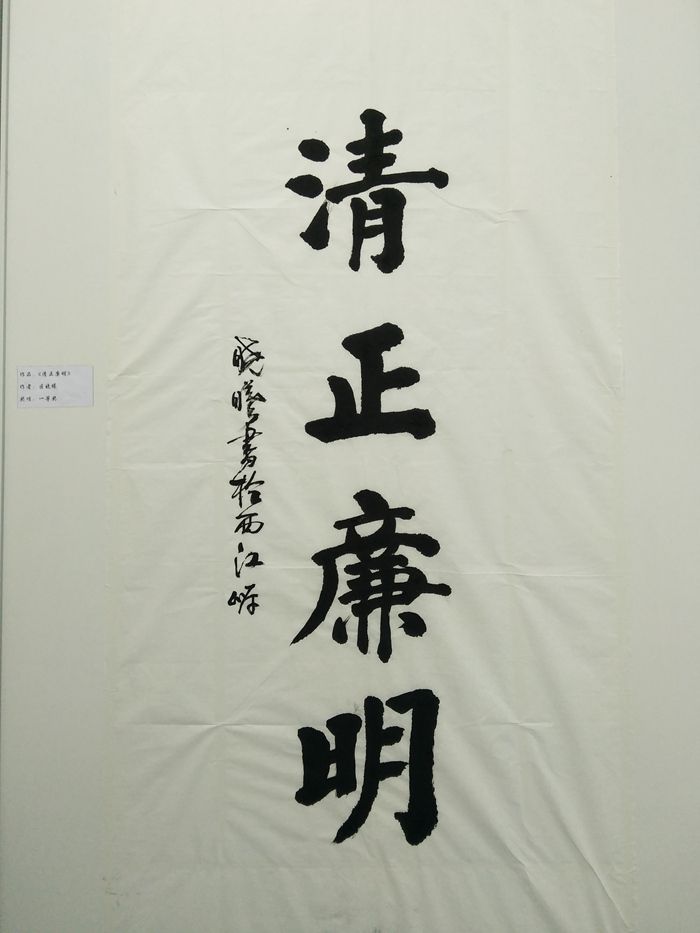 清正廉明
晓曦書於西江
作品：《清正廉明》
作者：
奖项：一等奖